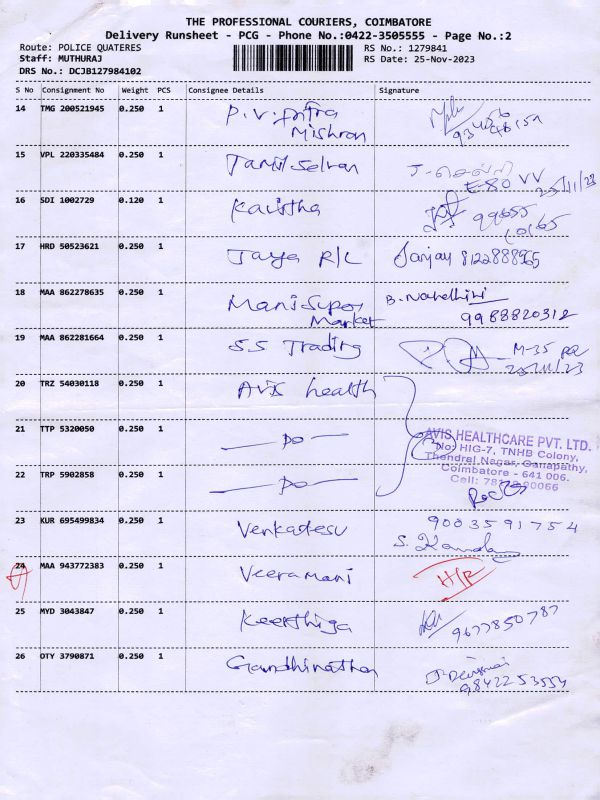 THE PROFESSIONAL COURIERS, COIMBATORE
Delivery Runsheet - PCG - Phone No.:0422-3505555 - Page No.:2
Route: POLICE QUATERES
RS No.: 1279841
Staff: MUTHURAJ
RS Date: 25-Nov-2023
DRS No.: DCJB127984102
S No Consignment No Weight PCS Consignee Details Signature
14 TMG 200521945 0.250 1 P.V. Mishron
15 VPL 220335484 0.250 1 Tamil Selvan
E-80 VV 25/11/23
16 SDI 1002729 0.120 1 Kavitha
99655
17 HRD 50523621 0.250 1 Jaya R/L Sanjay 8122888965
18 MAA 862278635 0.250 1 Mani Super Market
9988820312
19 MAA 862281664 0.250 1 S.S Trading M-35
25/11/23
20 TRZ 54030118 0.250 1 Avis health
21 TTP 5320050 0.250 1 — Do —
AVIS HEALTHCARE PVT. LTD.
No: HIG-7, TNHB Colony,
Thendral Nagar, Ganapathy,
Coimbatore - 641 006.
22 TRP 5902858 0.250 1 — Do —
23 KUR 695499834 0.250 1 Venkadesu 9003591754
24 MAA 943772383 0.250 1 Veeramani H/R
25 MYD 3043847 0.250 1 Keerthiga 9677850787
26 OTY 3790871 0.250 1 Gandhinathan
9842253554